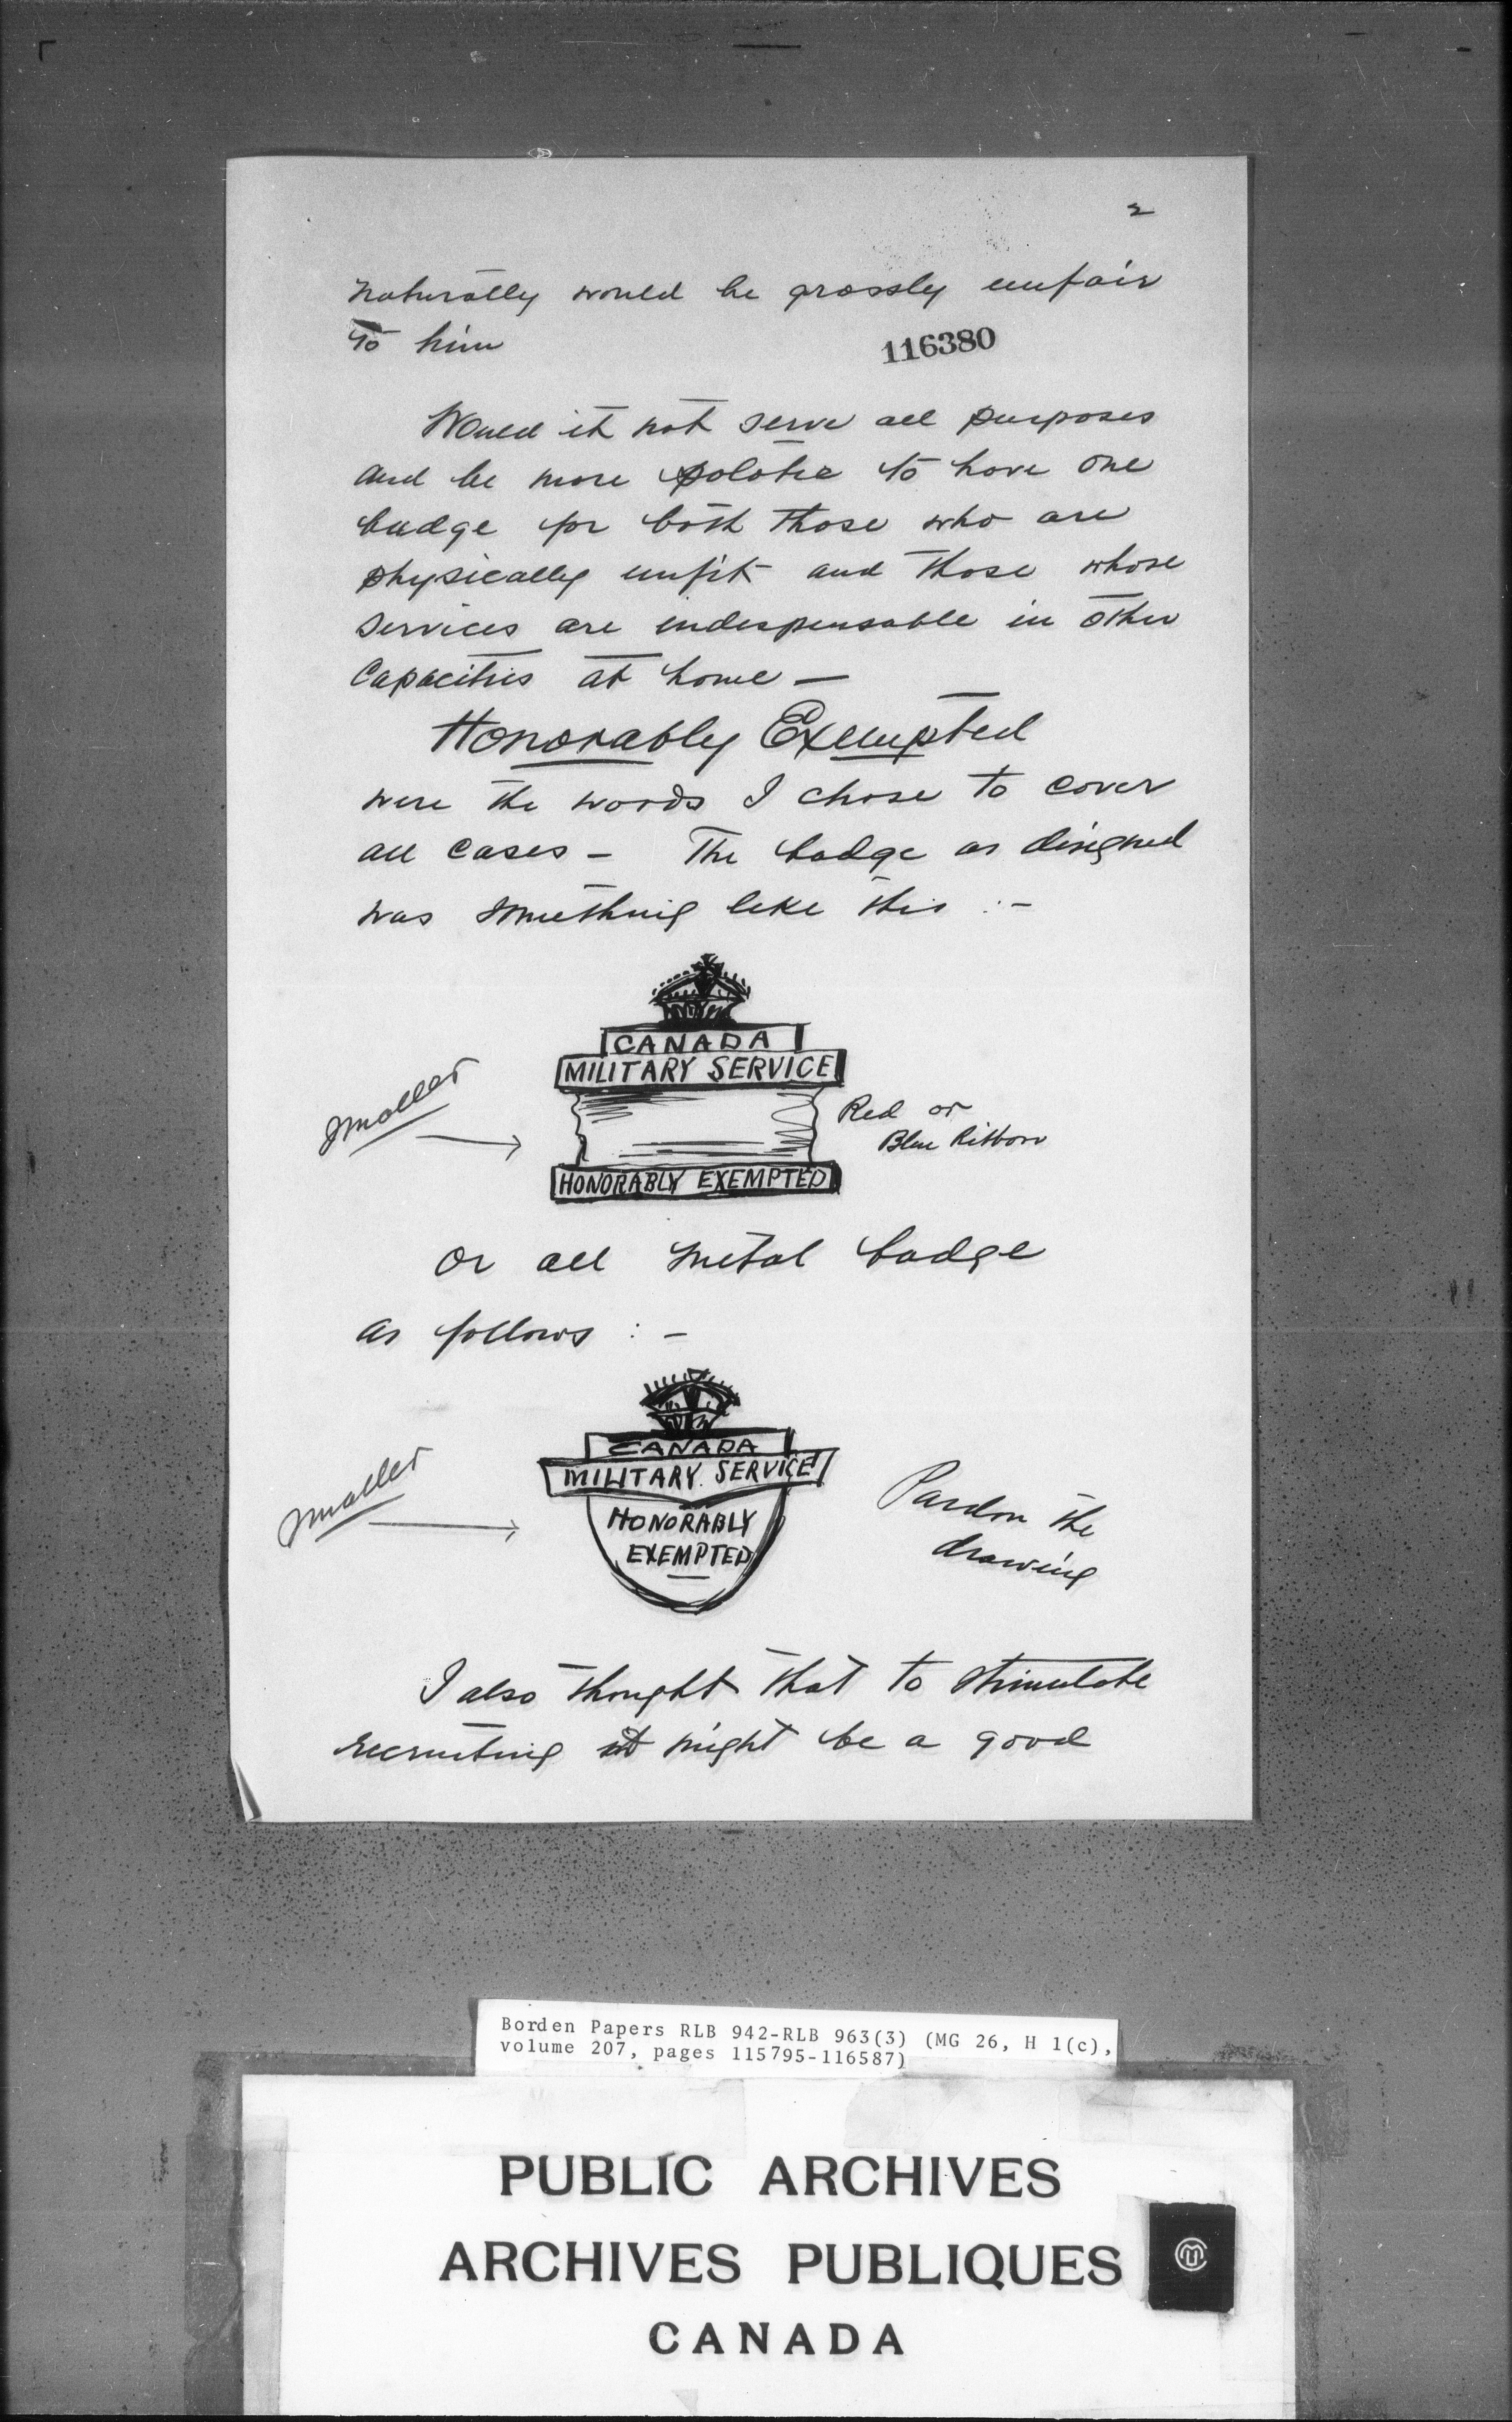 2
naturally would be grossly unfair
to him
116380
Would it not serve all purposes
and be more polotic to have one
badge for both those who are
physically unfit and those whose
services are indespensable in other
Capacities at home —
Honorably Exempted
were the words I chose to cover
all cases — The badge as designed
was something like this :-
CANADA
MILITARY SERVICE
smaller
Red or
Blue Ribbon
HONORABLY EXEMPTED
or all metal badge
as follows : -
CANADA
MILITARY SERVICE
smaller
HONORABLY
EXEMPTED
Pardon the
drawing
I also thought that to stimulate
recruiting it might be a good
Borden Papers RLB 942-RLB 963(3) (MG 26, H 1(c),
volume 207, pages 115795-116587)
PUBLIC ARCHIVES
ARCHIVES PUBLIQUES
CANADA